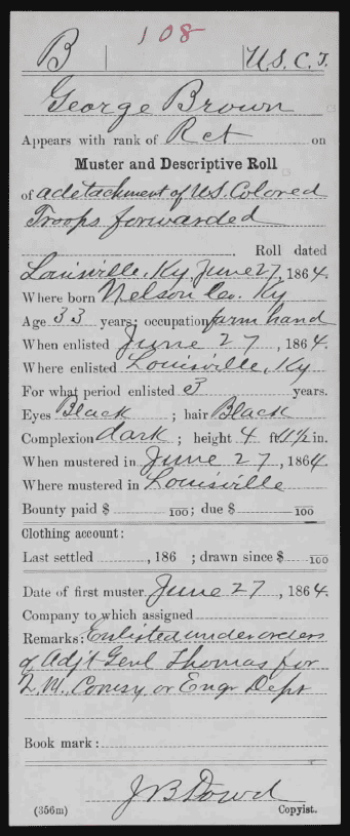 108
B U.S.C.T.
George Brown
Appears with rank of Rct on
Muster and Descriptive Roll
of a detachment of U.S. Colored
Troops forwarded
Roll dated
Louisville, Ky, June 27, 1864.
Where born Nelson Co. Ky
Age 33 years; occupation farm hand
When enlisted June 27, 1864.
Where enlisted Louisville, Ky
For what period enlisted 3 years.
Eyes Black; hair Black
Complexion dark; height 4 ft. 11½ in.
When mustered in June 27, 1864.
Where mustered in Louisville
Bounty paid $ 100; due $ 100
Clothing account:
Last settled , 186 ; drawn since $ 100
Date of first muster June 27, 1864.
Company to which assigned
Remarks: Enlisted under orders
of Adjt Genl Thomas for
Q.M. Comsy or Engr Dept
Book mark:
J B Dowd
(356m) Copyist.